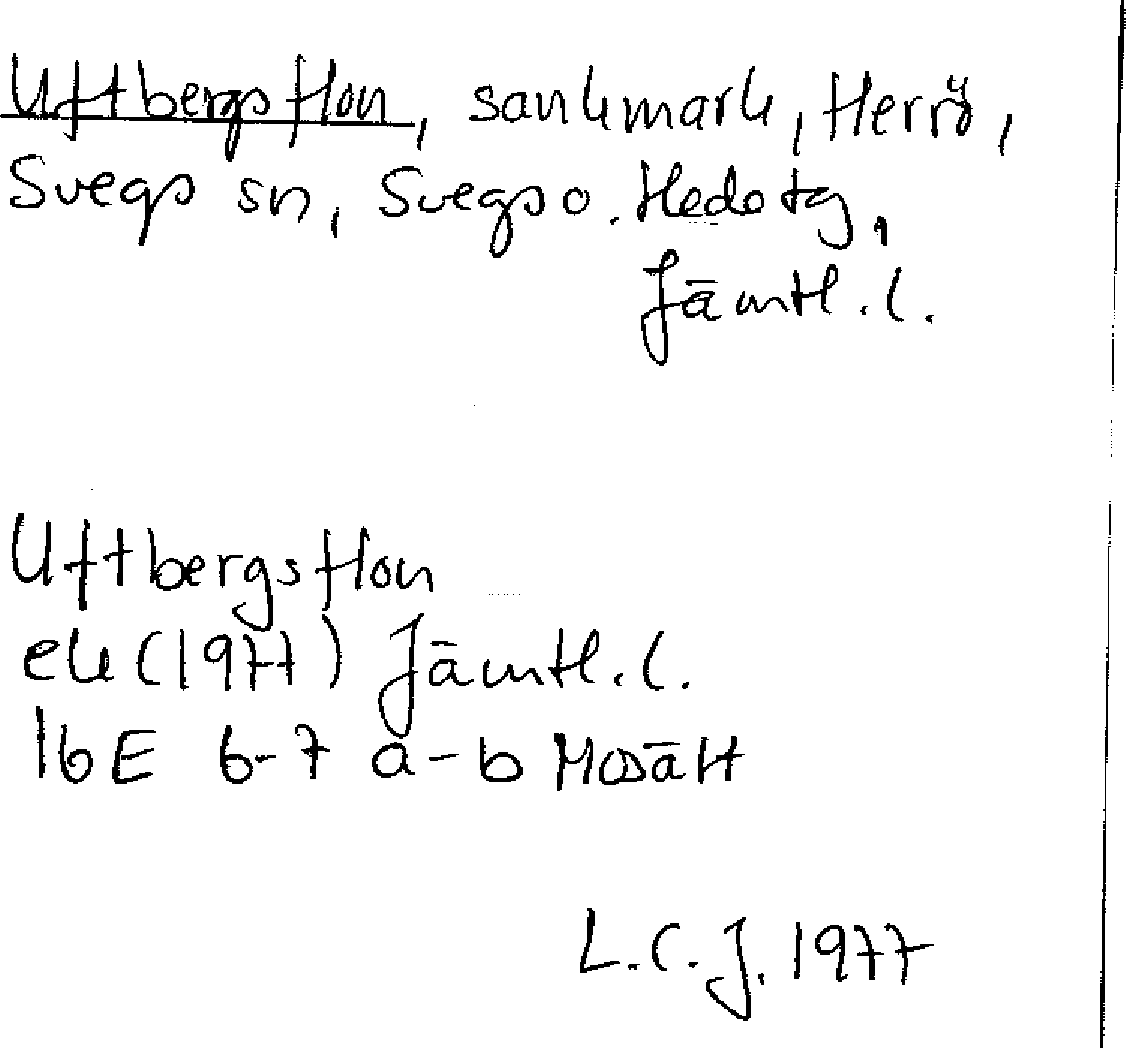 Uftbergsflon, sankmark, Herrö,
Svegs sn, Svegs o. Heds tg,
Jämtl. l.
Uftbergsflon
ek (1971) Jämtl. l.
16E 6-7 a-b Mosätt
L.C.J. 1977